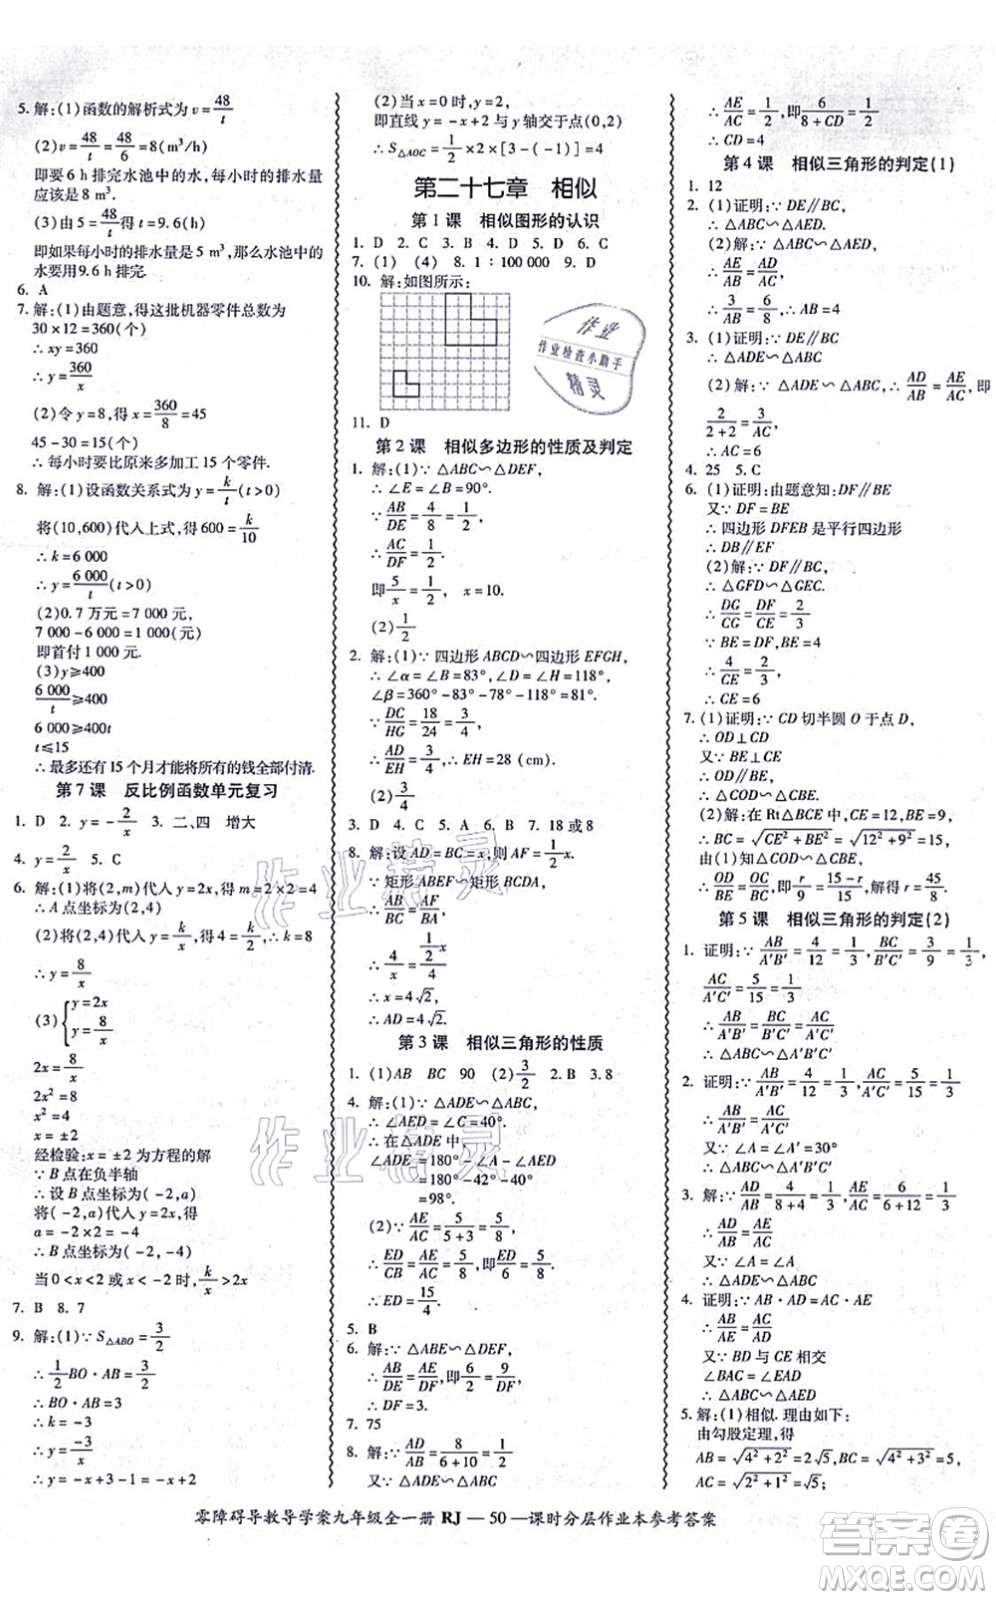 5. 解:(1)函数的解析式为 v=48/t
(2)v=48/t=48/6=8(m³/h)
即要 6 h 排完水池中的水,每小时的排水量
应该是 8 m³.
(3)由 5=48/t, t=9.6(h)
即如果每小时的排水量是 5 m³,那么水池中的
水要用 9.6 h 排完.
6. A
7. 解:(1)由题意,得这批机器零件总数为
30×12=360(个)
∴xy=360
∴y=360/x
(2)令 y=8,得 x=360/8=45
45-30=15(个)
∴每小时要比原来多加工 15 个零件.
8. 解:(1)设函数关系式为 y=k/t(t>0)
将(10,600)代入上式,得600=k/10
∴k=6 000
∴y=6 000/t(t>0)
(2)0.7 万元=7 000 元,
7 000-6 000=1 000(元)
即首付 1 000 元.
(3)y≥400
6 000/t≥400
t≤15
∴最多还有 15 个月才能将所有的钱全部付清.
第 7 课 反比例函数单元复习
1. D 2. y=-2/x 3. 二、四 增大
4. y=2/x 5. C
6. 解:(1)将(2,m)代入 y=2x,得 m=2×2=4
∴A 点坐标为(2,4)
(2)将(2,4)代入 y=k/x,得 4=k/2 ∴k=8
∴y=8/x
(3){y=2x
y=8/x
2x=8/x
2x²=8
x²=4
x=±2
经检验:x=±2 为方程的解
∵B 点在负半轴
∴设 B 点坐标为(-2,a)
将(-2,a)代入 y=2x,得
a=-2×2=-4
∴B 点坐标为(-2,-4)
当 0<x<2 或 x<-2 时,k/x>2x
7. B 8. 7
9. 解:(1)∵S△ABO=3/2
∴1/2 BO·AB=3/2
∴BO·AB=3
∴k=-3
∴y=-3/x
∴y=-x+3-1=-x+2
(2)当 x=0 时,y=2
即直线 y=-x+2 与 y 轴交于点(0,2)
∴S△AOC=1/2×2×[3-(-1)]=4
第二十七章 相似
第 1 课 相似图形的认识
1. D 2. C 3. C 4. B 5. D 6. C
7. (1) (4) 8. 1:100 000 9. D
10. 解:如图所示:
11. D
第 2 课 相似多边形的性质及判定
1. 解:(1)∵△ABC∽△DEF,
∴∠E=∠B=90°
∵AB/DE=4/8=1/2
∴AC/DF=1/2
即5/x=1/2, x=10.
(2)1/2
2. 解:(1)∵四边形 ABCD∽四边形 EFGH,
∴∠α=∠B=83°,∠D=∠H=118°
∠β=360°-83°-78°-118°=81°
∵DC/HG=18/24=3/4,
∴AD/EH=3/4,
(2)3/4
3. D 4. C 5. A 6. C 7. 18 或 8
8. 解:设 AD=BC=x,则 AF=1/2 x.
∵矩形 ABEF∽矩形 BCDA,
∴AB/BC=AF/BA
∴4/x=(1/2 x)/4
∴x=4√2,
∴AD=4√2.
第 3 课 相似三角形的性质
1. (1)AB BC 90 (2)3/2 2. B 3. 8
4. 解:(1)∵△ADE∽△ABC,
∴∠AED=∠C=40°.
∴在△ADE 中,
∠ADE=180°-∠A-∠AED
=180°-42°-40°
=98°.
(2)∵AE/AC=5/(5+3)=5/8
∴ED/CB=AE/AC=5/8
∴ED=15/4
5. B
6. 解:∵△ABE∽△DEF,
∴AB/DE=AE/DF,即6/2=9/DF
∴DF=3.
7. 75
8. 解:∵AD/AB=8/(6+10)=1/2
又∵△ADE∽△ABC
∴AE/AC=1/2,即6/(8+CD)=1/2
∴CD=4
第 4 课 相似三角形的判定(1)
1. 12
2. (1)证明:∵DE∥BC,
∴△ABC∽△AED.
(2)解:∵△ABC∽△AED
∴AE/AB=AD/AC
∴3/AB=6/8 ∴AB=4
3. (1)证明:∵DE∥BC
∴△ADE∽△ABC
(2)解:∵△ADE∽△ABC,∴AD/AB=AE/AC,即
2/(2+2)=3/AC
∴AC=6
4. 25 5. C
6. (1)证明:由题意知:DF∥BE
又∵DF=BE
∴四边形 DFEB 是平行四边形
∴DB∥EF
(2)解:∵DF∥BE,
∴△GFD∽△GEC.
∴DG/CG=DF/CE=2/3
∵BE=DF,BE=4
∴4/CE=2/3
∴CE=6
7. (1)证明:∵CD 切半圆 O 于点 D,
∴OD⊥CD
又∵BE⊥CE
∴△CDO∽△CEB
(2)解:在 Rt△BCE 中,CE=12,BE=9,
∴BC=√(CE²+BE²)=√(12²+9²)=15,
由(1)知△CDO∽△CEB
∴OD/BE=OC/BC,即r/9=(15-r)/15,解得 r=45/8.
第 5 课 相似三角形的判定(2)
1. 证明:∵AB/A′B′=4/12=1/3,BC/B′C′=3/9=1/3,
AC/A′C′=5/15=1/3
∴AB/A′B′=BC/B′C′=AC/A′C′
∴△ABC∽△A′B′C′
2. 证明:∵AB/A′B′=4/12=1/3,AC/A′C′=5/15=1/3
∴AB/A′B′=AC/A′C′
又∵∠A=∠A′=30°
∴△ABC∽△A′B′C′
3. 解:∵AD/AB=4/(8+4)=1/3,AE/AC=6/(6+12)=1/3
∴AD/AB=AE/AC
又∵∠A=∠A
∴△ADE∽△ABC
4. 证明:∵AB·AD=AC·AE
∴AB/AE=AC/AD
又∵BD 与 CE 相交
∠BAC=∠EAD
∴△ABC∽△AED
5. 解:(1)相似. 理由如下:
由勾股定理,得
AB=√(4²+2²)=2√5,BC=√(4²+3²)=5,
AC=√(2²+1²)=√5
零障碍导教导学案九年级全一册 RJ — 50 —课时分层作业本参考答案
作业
作业检查小助手
精灵
作业精灵
作业精灵
答案圈
MXQE.COM